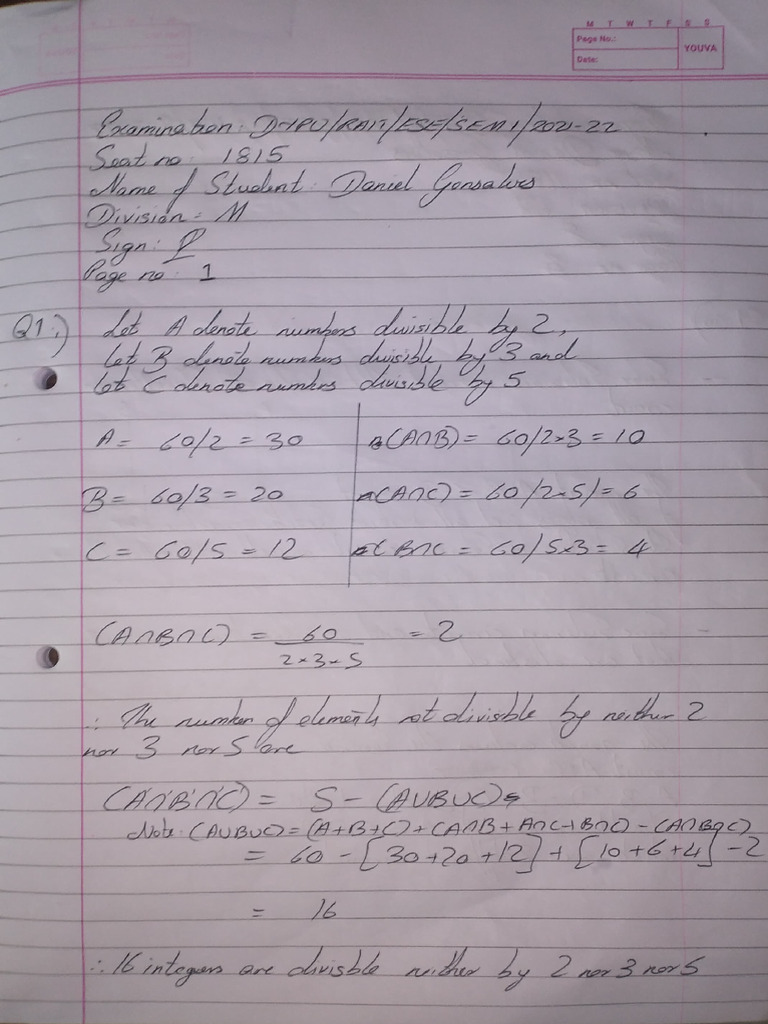 M T W T F S S
Page No.:
YOUVA
Date:
Examination: D-YPU/RAIT/ESE/SEM 1/2021-22
Seat no: 1815
Name of Student: Daniel Gonsalves
Division = M
Sign:
Page no: 1
Q1.) Let A denote numbers divisible by 2,
let B denote numbers divisible by 3 and
let C denote numbers divisible by 5
A = 60/2 = 30 (A∩B) = 60/2×3 = 10
B = 60/3 = 20 (A∩C) = 60/2×5) = 6
C = 60/5 = 12 B∩C = 60/5×3 = 4
(A∩B∩C) = 60 / 2×3×5 = 2
∴ The number of elements not divisible by neither 2
nor 3 nor 5 are
(A'∩B'∩C') = S - (A∪B∪C)
Note: (A∪B∪C) = (A+B+C) + (A∩B + A∩C + B∩C) - (A∩B∩C)
= 60 - [30+20+12] + [10+6+4] - 2
= 16
∴ 16 integers are divisble neither by 2 nor 3 nor 5